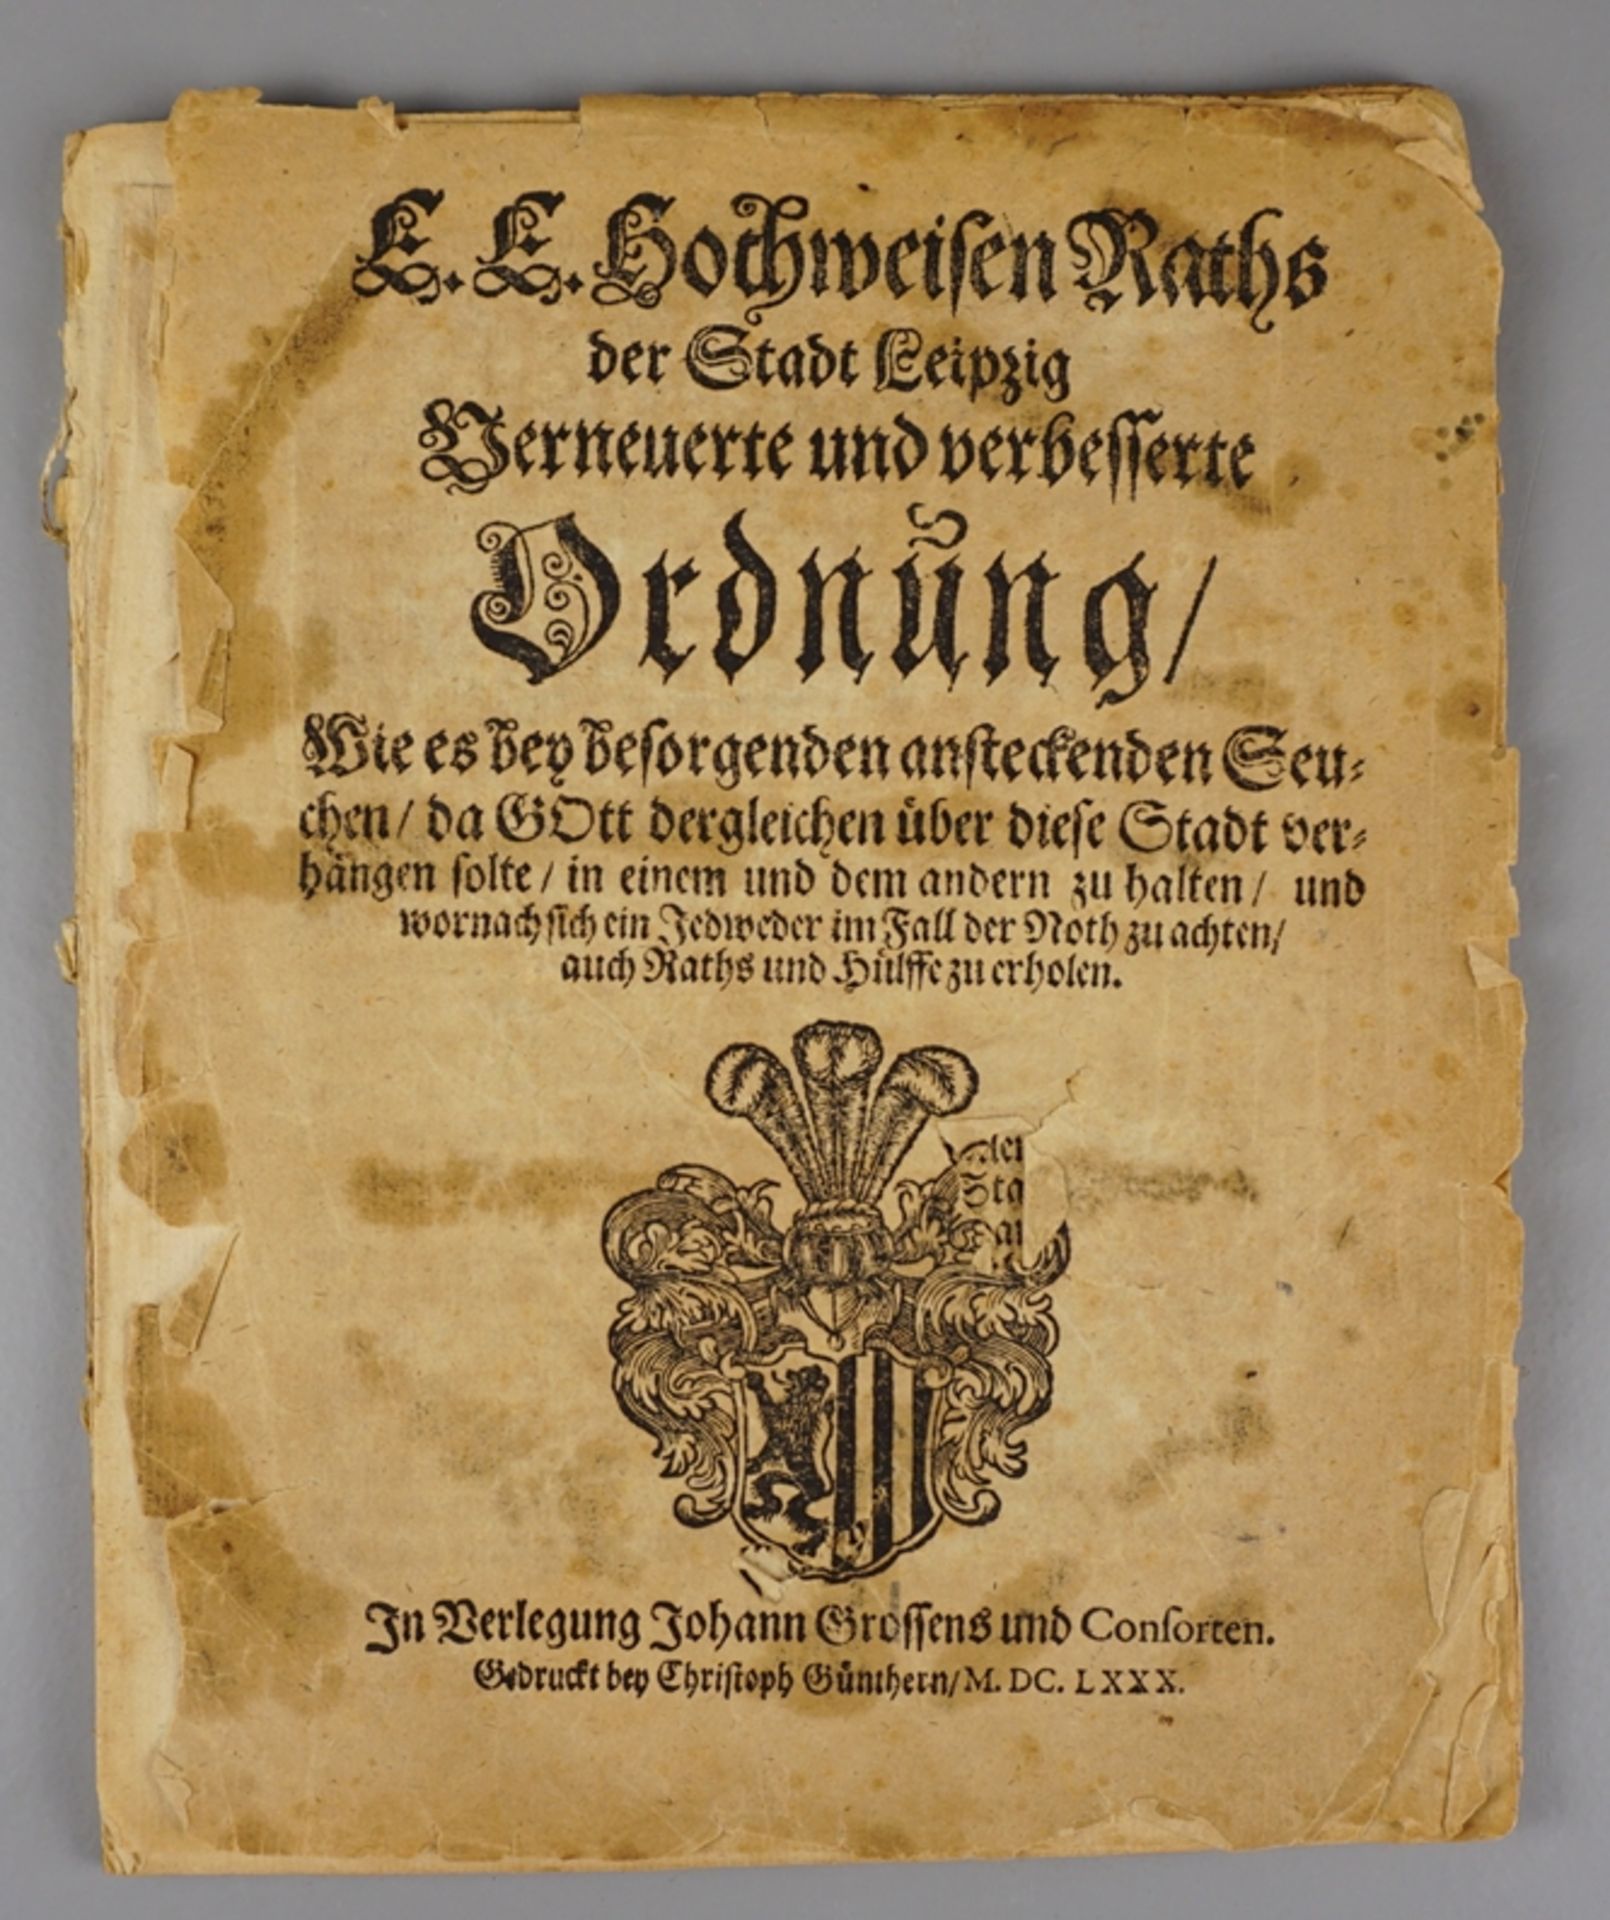 E. E. Hochweisen Raths
der Stadt Leipzig
Verneuerte und verbesserte
Ordnũng/
Wie es bey besorgenden ansteckenden Seu-
chen/ da GOtt dergleichen über diese Stadt ver-
hängen solte/ in einem und dem andern zu halten/ und
wornach sich ein Jedweder im Fall der Noth zu achten/
auch Raths und Hülffe zu erholen.
Sta
In Verlegung Johann Grossens und Consorten.
Gedruckt bey Christoph Günthern/ M. DC. LXXX.